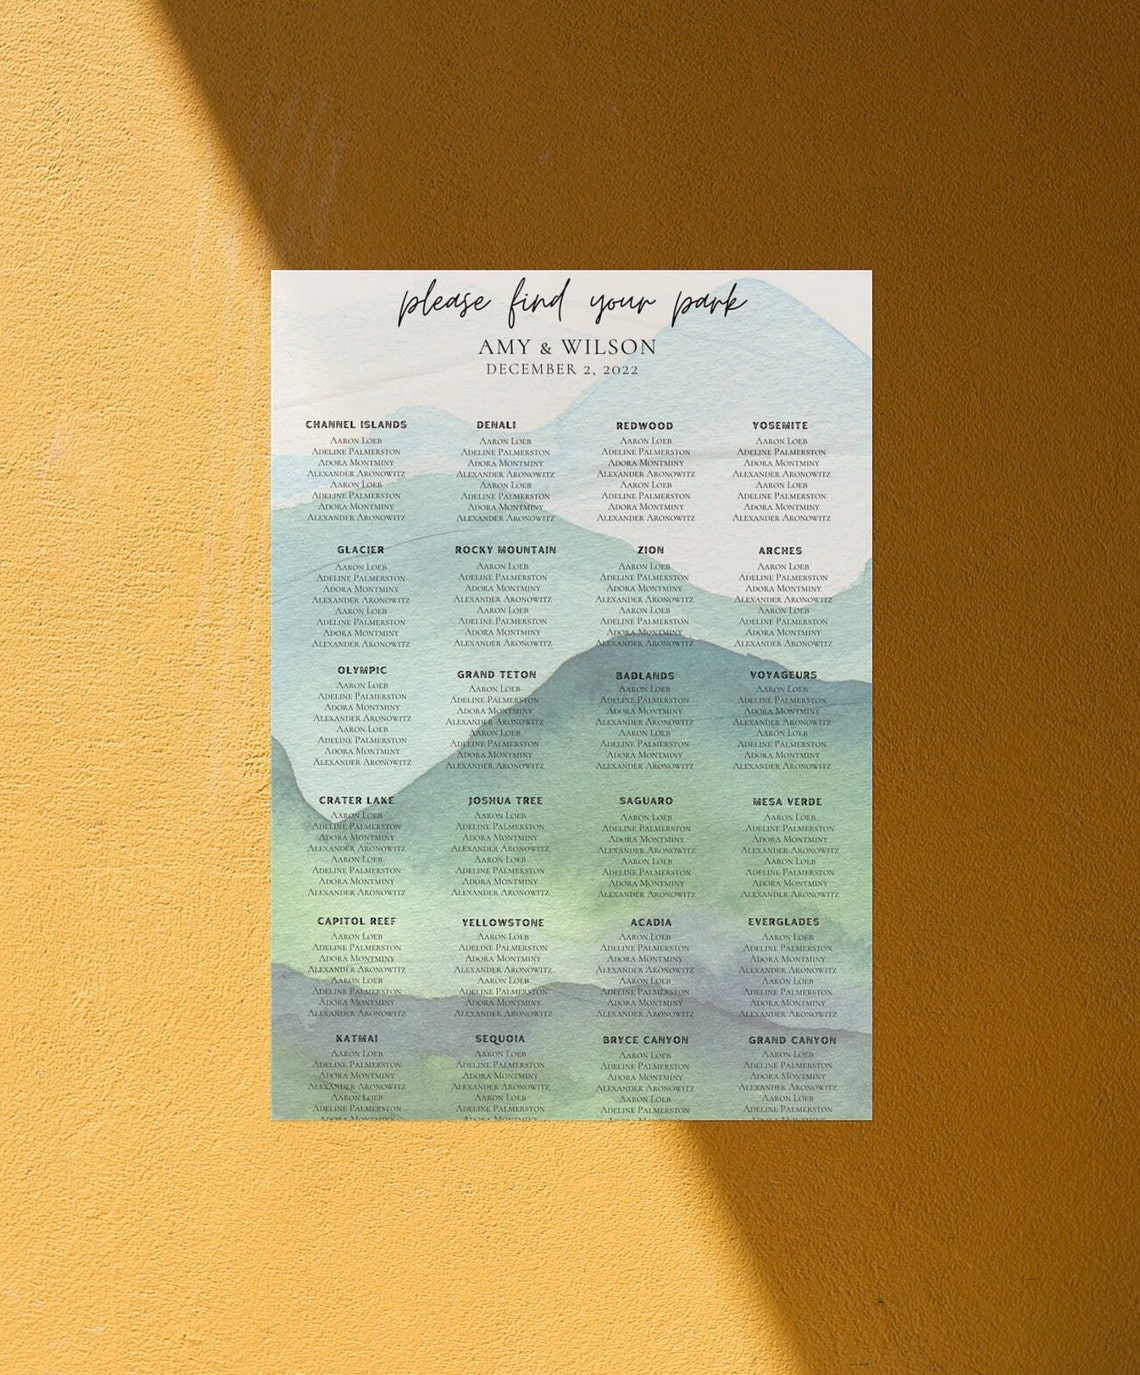 please find your park
AMY & WILSON
DECEMBER 2, 2022
CHANNEL ISLANDS
Aaron Loeb
Adeline Palmerston
Adora Montminy
Alexander Aronowitz
Aaron Loeb
Adeline Palmerston
Adora Montminy
Alexander Aronowitz
DENALI
Aaron Loeb
Adeline Palmerston
Adora Montminy
Alexander Aronowitz
Aaron Loeb
Adeline Palmerston
Adora Montminy
Alexander Aronowitz
REDWOOD
Aaron Loeb
Adeline Palmerston
Adora Montminy
Alexander Aronowitz
Aaron Loeb
Adeline Palmerston
Adora Montminy
Alexander Aronowitz
YOSEMITE
Aaron Loeb
Adeline Palmerston
Adora Montminy
Alexander Aronowitz
Aaron Loeb
Adeline Palmerston
Adora Montminy
Alexander Aronowitz
GLACIER
Aaron Loeb
Adeline Palmerston
Adora Montminy
Alexander Aronowitz
Aaron Loeb
Adeline Palmerston
Adora Montminy
Alexander Aronowitz
ROCKY MOUNTAIN
Aaron Loeb
Adeline Palmerston
Adora Montminy
Alexander Aronowitz
Aaron Loeb
Adeline Palmerston
Adora Montminy
Alexander Aronowitz
ZION
Aaron Loeb
Adeline Palmerston
Adora Montminy
Alexander Aronowitz
Aaron Loeb
Adeline Palmerston
Adora Montminy
Alexander Aronowitz
ARCHES
Aaron Loeb
Adeline Palmerston
Adora Montminy
Alexander Aronowitz
Aaron Loeb
Adeline Palmerston
Adora Montminy
Alexander Aronowitz
OLYMPIC
Aaron Loeb
Adeline Palmerston
Adora Montminy
Alexander Aronowitz
Aaron Loeb
Adeline Palmerston
Adora Montminy
Alexander Aronowitz
GRAND TETON
Aaron Loeb
Adeline Palmerston
Adora Montminy
Alexander Aronowitz
Aaron Loeb
Adeline Palmerston
Adora Montminy
Alexander Aronowitz
BADLANDS
Aaron Loeb
Adeline Palmerston
Adora Montminy
Alexander Aronowitz
Aaron Loeb
Adeline Palmerston
Adora Montminy
Alexander Aronowitz
VOYAGEURS
Aaron Loeb
Adeline Palmerston
Adora Montminy
Alexander Aronowitz
Aaron Loeb
Adeline Palmerston
Adora Montminy
Alexander Aronowitz
CRATER LAKE
Aaron Loeb
Adeline Palmerston
Adora Montminy
Alexander Aronowitz
Aaron Loeb
Adeline Palmerston
Adora Montminy
Alexander Aronowitz
JOSHUA TREE
Aaron Loeb
Adeline Palmerston
Adora Montminy
Alexander Aronowitz
Aaron Loeb
Adeline Palmerston
Adora Montminy
Alexander Aronowitz
SAGUARO
Aaron Loeb
Adeline Palmerston
Adora Montminy
Alexander Aronowitz
Aaron Loeb
Adeline Palmerston
Adora Montminy
Alexander Aronowitz
MESA VERDE
Aaron Loeb
Adeline Palmerston
Adora Montminy
Alexander Aronowitz
Aaron Loeb
Adeline Palmerston
Adora Montminy
Alexander Aronowitz
CAPITOL REEF
Aaron Loeb
Adeline Palmerston
Adora Montminy
Alexander Aronowitz
Aaron Loeb
Adeline Palmerston
Adora Montminy
Alexander Aronowitz
YELLOWSTONE
Aaron Loeb
Adeline Palmerston
Adora Montminy
Alexander Aronowitz
Aaron Loeb
Adeline Palmerston
Adora Montminy
Alexander Aronowitz
ACADIA
Aaron Loeb
Adeline Palmerston
Adora Montminy
Alexander Aronowitz
Aaron Loeb
Adeline Palmerston
Adora Montminy
Alexander Aronowitz
EVERGLADES
Aaron Loeb
Adeline Palmerston
Adora Montminy
Alexander Aronowitz
Aaron Loeb
Adeline Palmerston
Adora Montminy
Alexander Aronowitz
KATMAI
Aaron Loeb
Adeline Palmerston
Adora Montminy
Alexander Aronowitz
Aaron Loeb
Adeline Palmerston
SEQUOIA
Aaron Loeb
Adeline Palmerston
Adora Montminy
Alexander Aronowitz
Aaron Loeb
Adeline Palmerston
BRYCE CANYON
Aaron Loeb
Adeline Palmerston
Adora Montminy
Alexander Aronowitz
Aaron Loeb
Adeline Palmerston
GRAND CANYON
Aaron Loeb
Adeline Palmerston
Adora Montminy
Alexander Aronowitz
Aaron Loeb
Adeline Palmerston